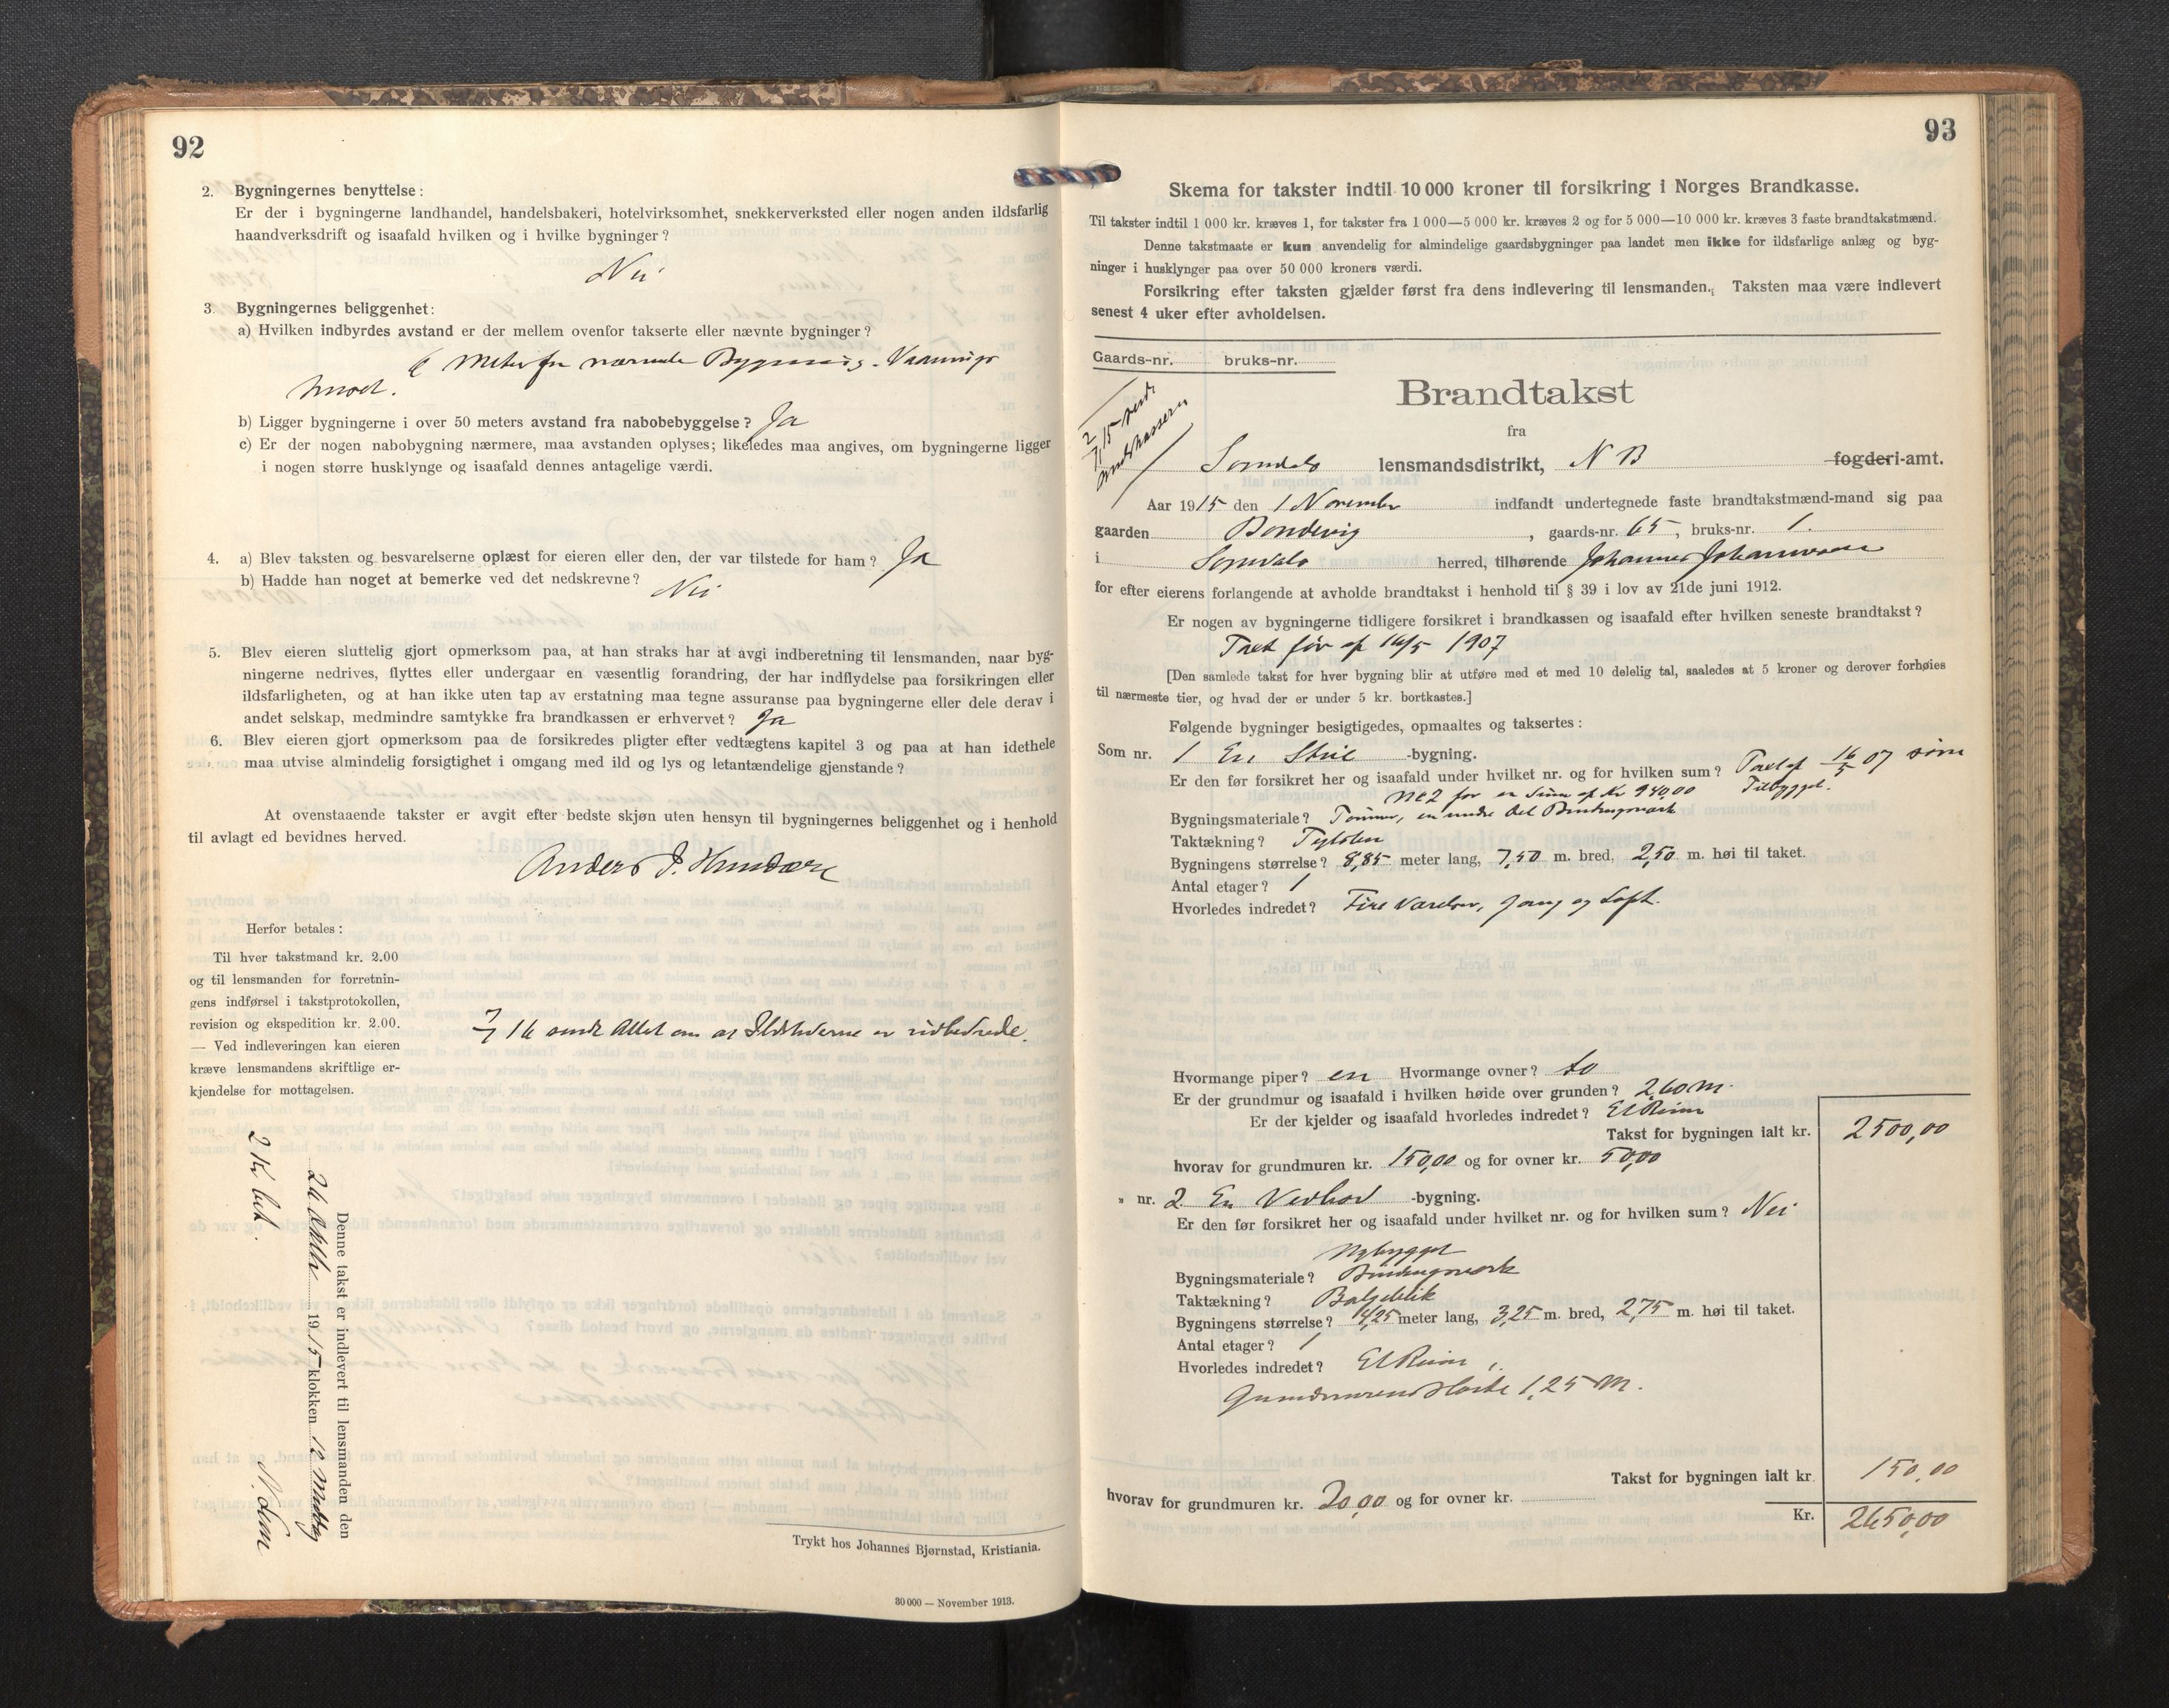 92
2. Bygningernes benyttelse:
Er der i bygningerne landhandel, handelsbakeri, hotelvirksomhet, snekkerverksted eller nogen anden ildsfarlig
haandverksdrift og isaafald hvilken og i hvilke bygninger?
Nei
3 Bygningernes beliggenhet:
a) Hvilken indbyrdes avstand er der mellem ovenfor takserte eller nævnte bygninger?
6 Meter fra nærmeste Bygning - Vaanings
huset.
b) Ligger bygningerne i over 50 meters avstand fra nabobebyggelse? Ja
c) Er der nogen nabobygning nærmere, maa avstanden oplyses; likeledes maa angives, om bygningerne ligger
i nogen større husklynge og isaafald dennes antagelige værdi.
4. a) Blev taksten og besvarelserne oplæst for eieren eller den, der var tilstede for ham? Ja
b) Hadde han noget at bemerke ved det nedskrevne? Nei
5. Blev eieren sluttelig gjort opmerksom paa, at han straks har at avgi indberetning til lensmanden, naar byg-
ningerne nedrives, flyttes eller undergaar en væsentlig forandring, der har indflydelse paa forsikringen eller
ildsfarligheten, og at han ikke uten tap av erstatning maa tegne assuranse paa bygningerne eller dele derav i
andet selskap, medmindre samtykke fra brandkassen er erhvervet? Ja
6. Blev eieren gjort opmerksom paa de forsikredes pligter efter vedtægtens kapitel 3 og paa at han idethele
maa utvise almindelig forsigtighet i omgang med ild og lys og letantændelige gjenstande?
At ovenstaaende takster er avgit efter bedste skjøn uten hensyn til bygningernes beliggenhet og i henhold
til avlagt ed bevidnes herved.
Anders J.
Herfor betales:
Til hver takstmand kr. 2.00
og til lensmanden for forretnin-
gens indførsel i takstprotokollen,
revision og ekspedition kr. 2.00.
— Ved indleveringen kan eieren
kræve lensmandens skriftlige er-
kjendelse for mottagelsen.
7/7 16 sendt Attest om at Ildstederne er utbedrede.
Denne takst er indlevert til lensmanden den
1915 klokken 12 Middag
2 Kr. bet.
Trykt hos Johannes Bjørnstad, Kristiania.
30 000 — November 1913.
93
Skema for takster indtil 10 000 kroner til forsikring i Norges Brandkasse.
Til takster indtil 1 000 kr. kræves 1, for takster fra 1 000—5 000 kr. kræves 2 og for 5 000—10 000 kr. kræves 3 faste brandtakstmænd.
Denne takstmaate er kun anvendelig for almindelige gaardsbygninger paa landet men ikke for ildsfarlige anlæg og byg-
ninger i husklynger paa over 50 000 kroners værdi.
Forsikring efter taksten gjælder først fra dens indlevering til lensmanden. Taksten maa være indlevert
senest 4 uker efter avholdelsen.
Gaards-nr. bruks-nr.
15 sendt
Brandkassen
Brandtakst
fra
lensmandsdistrikt, N B fogderi-amt.
Aar 1915 den 1 November indfandt undertegnede faste brandtakstmænd-mand sig paa
gaarden Bondevig, gaards-nr. 65, bruks-nr. 1.
i herred, tilhørende Johannes Johannessen
for efter eierens forlangende at avholde brandtakst i henhold til § 39 i lov av 21de juni 1912.
Er nogen av bygningerne tidligere forsikret i brandkassen og isaafald efter hvilken seneste brandtakst?
Taxt før af 16/5 1907
[Den samlede takst for hver bygning blir at utføre med et med 10 delelig tal, saaledes at 5 kroner og derover forhøies
til nærmeste tier, og hvad der er under 5 kr. bortkastes.]
Følgende bygninger besigtigedes, opmaaltes og taksertes:
Som nr. 1 En Stue -bygning.
Er den før forsikret her og isaafald under hvilket nr. og for hvilken sum? Taxt af 16/5 07 som
No 2 for en Sum af Kr 940,00 Tilbygget.
Bygningsmateriale? Tømmer, en mindre Del Bindingsværk
Taktækning? Teglsten
Bygningens størrelse? 8,85 meter lang, 7,50 m. bred, 2,50 m. høi til taket.
Antal etager? 1
Hvorledes indredet? Fire Værelser, Gang og Loft.
Hvormange piper? en Hvormange ovner? to
Er der grundmur og isaafald i hvilken høide over grunden? 2,60 m.
Er der kjelder og isaafald hvorledes indredet? Et Rum
Takst for bygningen ialt kr. 2500,00
hvorav for grundmuren kr. 150,00 og for ovner kr. 50,00
„ nr. 2 En Vedbod -bygning.
Er den før forsikret her og isaafald under hvilket nr. og for hvilken sum? Nei
Nybygget
Bygningsmateriale? Bindingsværk
Taktækning? Bølgeblik
Bygningens størrelse? 4,25 meter lang, 3,25 m. bred, 2,75 m. høi til taket.
Antal etager? 1
Hvorledes indredet? Et Rum
Grundmurens Høide 1,25 M.
Takst for bygningen ialt kr. 150,00
hvorav for grundmuren kr. 20,00 og for ovner kr.
Kr. 2650,00